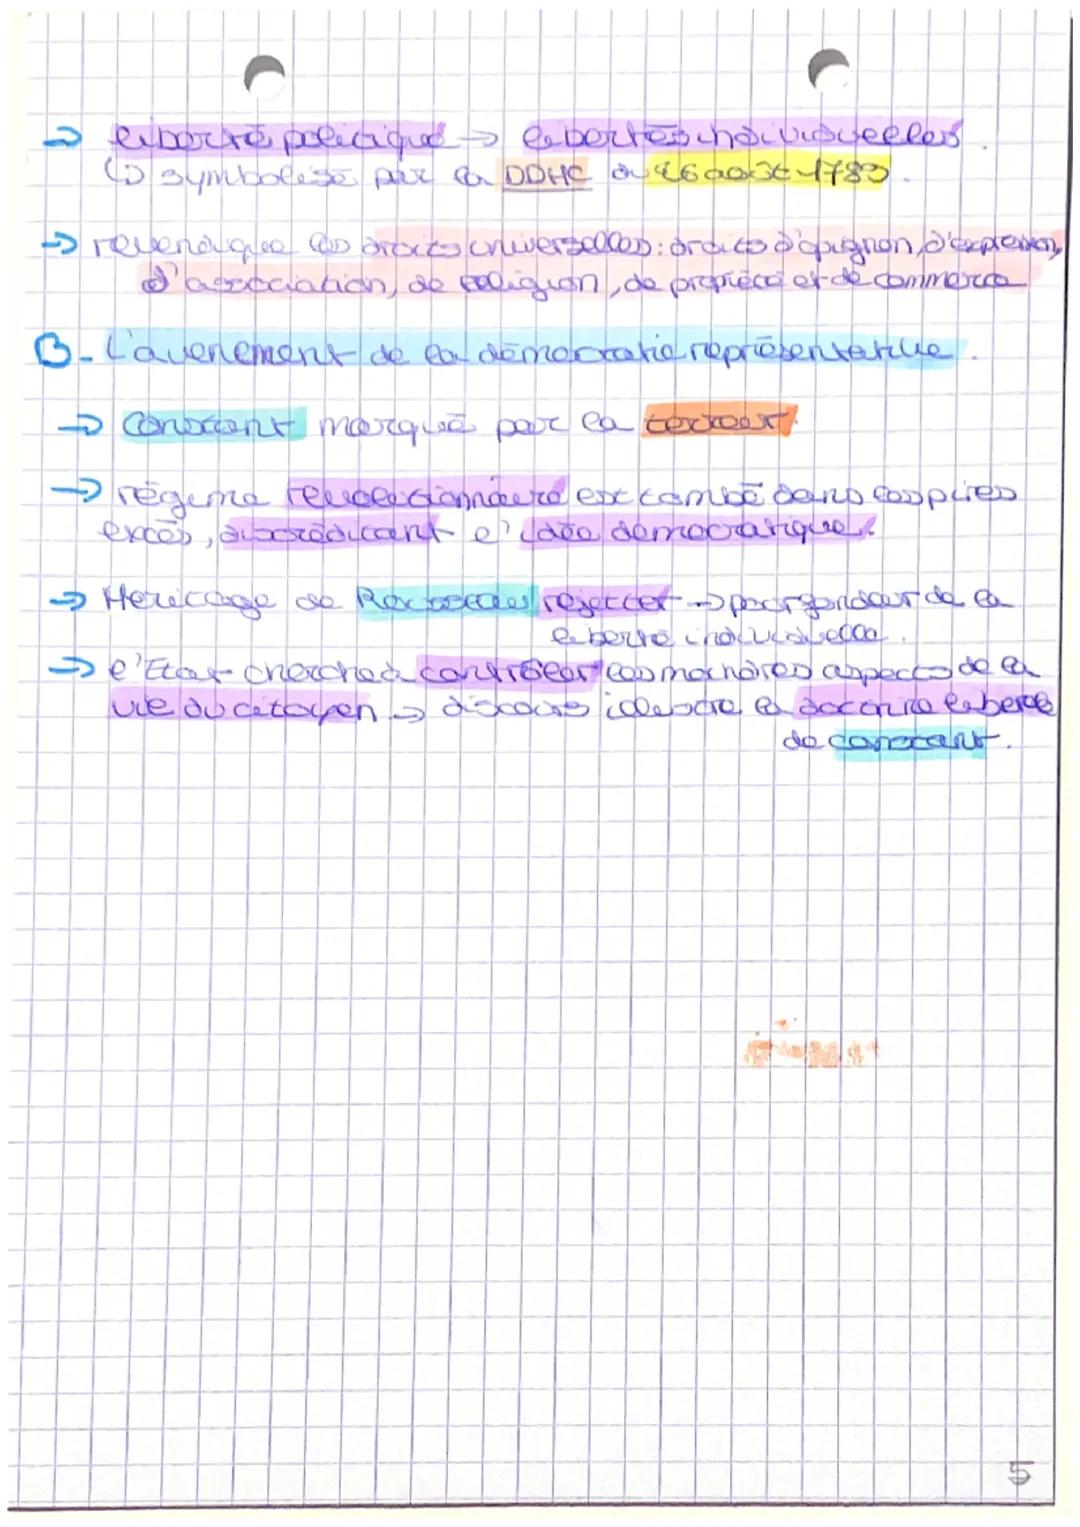 → liberté politique → libertés individuelles.
↳ symbolisé par la DDHC du 26 août 1789.
→ revendique les droits universelles : droits d'opignon, d'expression,
d'association, de religion, de propriété et de commerce
B - L'avenement de la démocratie représentative.
→ Constant marqué par la terreur.
→ régime revolutionnaire est tombé dans les pires
excès, discréditant l'idée démocratique.
→ Heritage de Rousseau rejetter → pourfendeur de la
liberté individuelle.
→ l'Etat cherche à contrôler les moindres aspects de la
vie du citoyen → discours illustre la doctrine liberale
de constant.
5